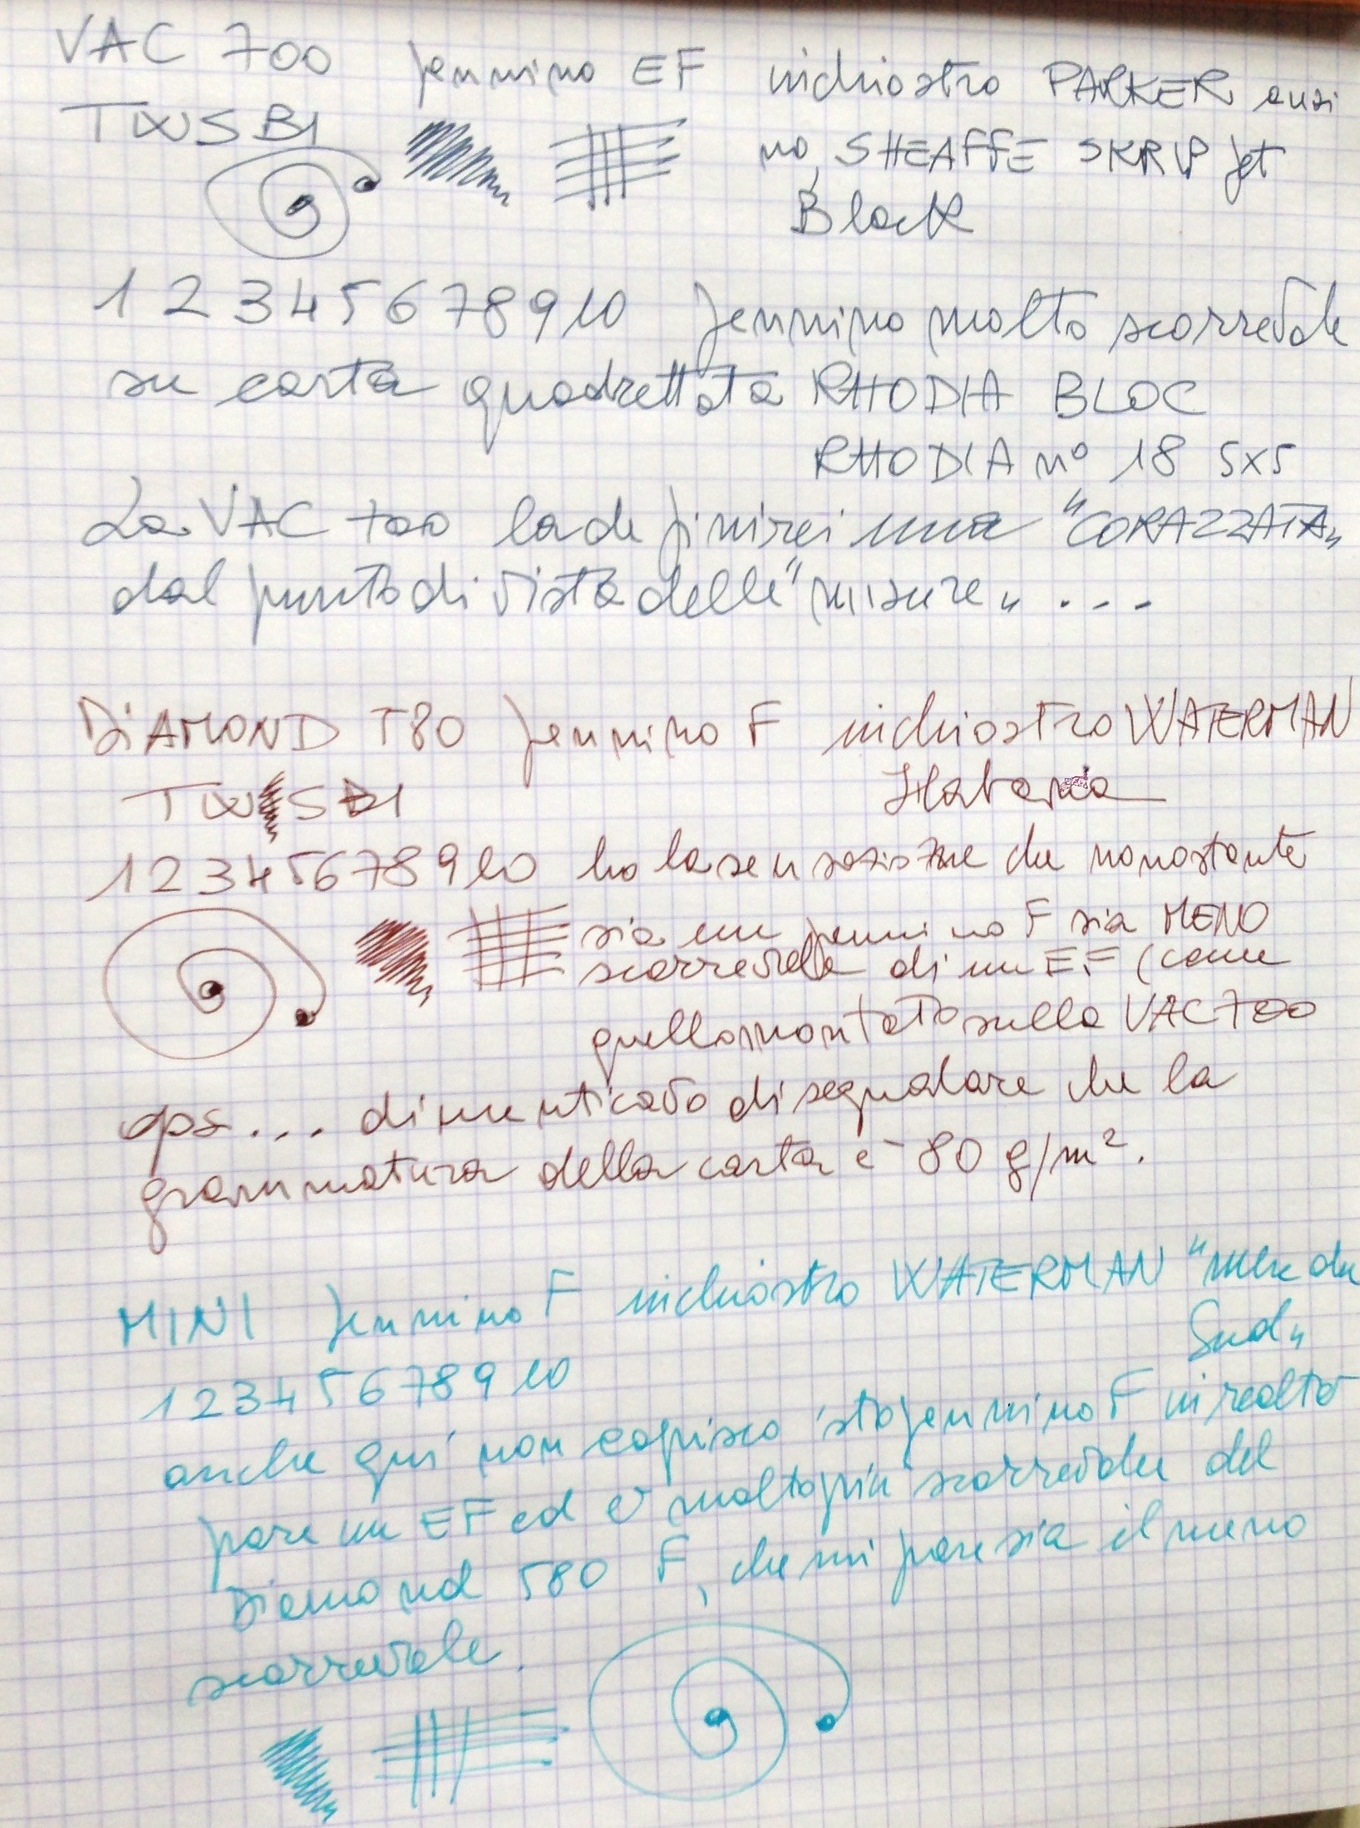 VAC 700 pennino EF inchiostro PARKER anzi
TWSBI no, SHEAFFE SKRIP jet
Black
1 2 3 4 5 6 7 8 9 10 pennino molto scorrevole
su carta quadrettata RHODIA BLOC
RHODIA n° 18 5x5
La VAC 700 la definirei una "CORAZZATA"
dal punto di vista delle "misure" ...
DiAMOND 580 pennino F inchiostro WATERMAN
TWSBI Havana
1 2 3 4 5 6 7 8 9 10 ho la sensazione che nonostante
sia un pennino F sia MENO
scorrevole di un EF (come
quello montato sulla VAC 700
ops... dimenticavo di segnalare che la
grammatura della carta è 80 g/m².
MINI pennino F inchiostro WATERMAN "mer du
Sud"
1 2 3 4 5 6 7 8 9 10
anche qui non capisco 'sto pennino F in realtà
pare un EF ed è molto più scorrevole del
Diamond 580 F, che mi pare sia il meno
scorrevole.